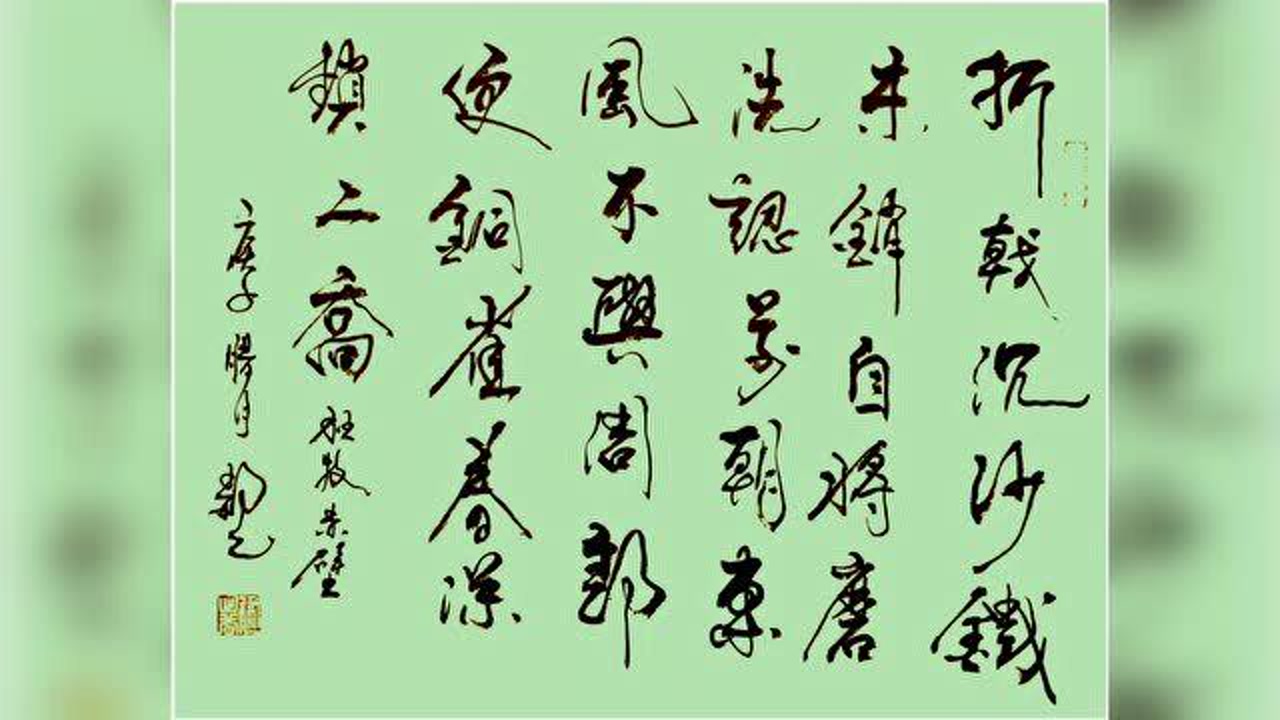 折戟沉沙鐵
未鋒自將磨
洗認前朝東
風不與周郎
便銅雀春深
鎖二喬 杜牧赤壁
庚子臘月